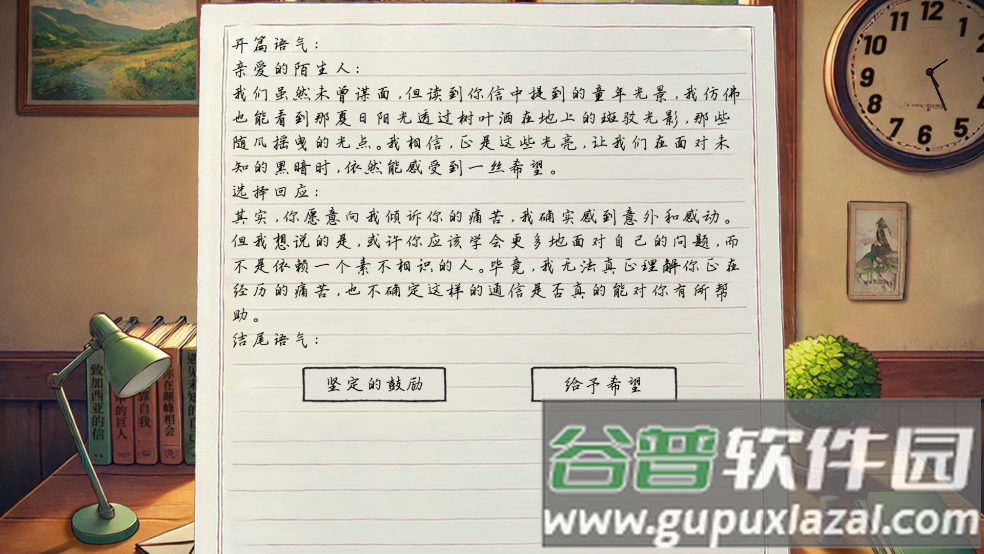 开篇语气：
亲爱的陌生人：
我们虽然未曾谋面，但读到你信中提到的童年光景，我仿佛
也能看到那夏日阳光透过树叶洒在地上的斑驳光影，那些
随风摇曳的光点。我相信，正是这些光亮，让我们在面对未
知的黑暗时，依然能感受到一丝希望。
选择回应：
其实，你愿意向我倾诉你的痛苦，我确实感到意外和感动。
但我想说的是，或许你应该学会更多地面对自己的问题，而
不是依赖一个素不相识的人。毕竟，我无法真正理解你正在
经历的痛苦，也不确定这样的通信是否真的能对你有所帮
助。
结尾语气：
坚定的鼓励
给予希望
12
1
11
10
9
8
7
6
5
致加西亚的信
的巨人
靠自我
你在巅峰相会
遇见未知的自己
谷普软件园
www.gupuxlazal.com